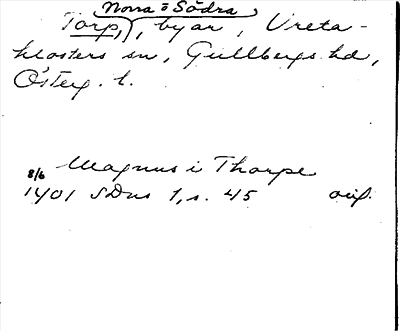 Norra o Södra
Torp, byar, Vreta-
klosters sn, Gullbergs hd,
Österg. l.
Magnus i Thorpe
8/6
1401 SDns 1, s. 45 orig.